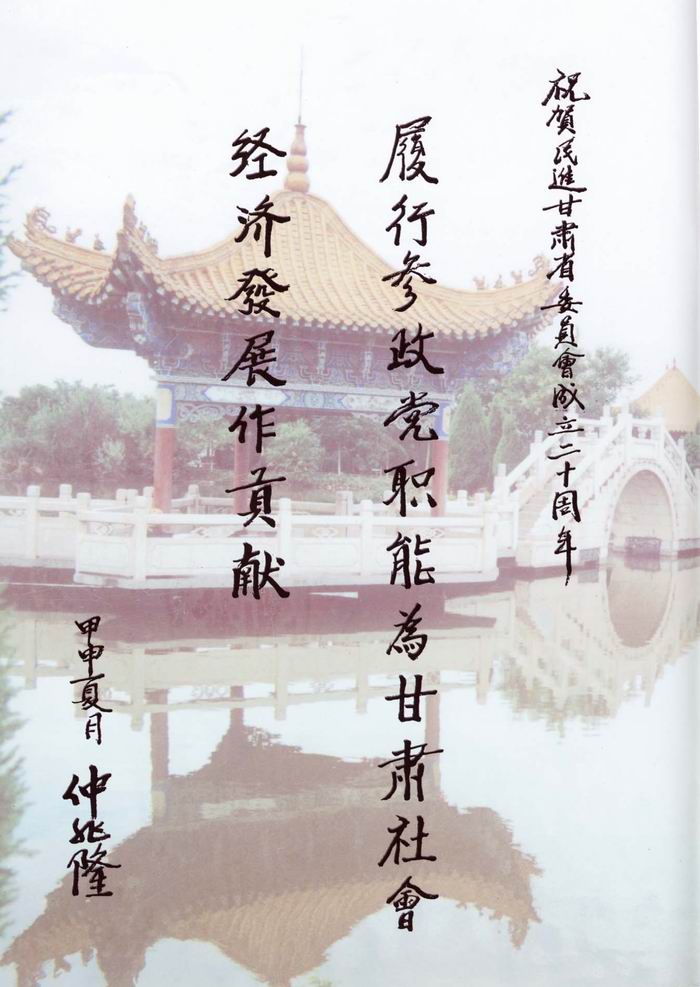 祝賀民進甘肅省委員會成立二十周年
履行参政党职能為甘肅社會
经济發展作貢献
甲申夏月
仲兆隆